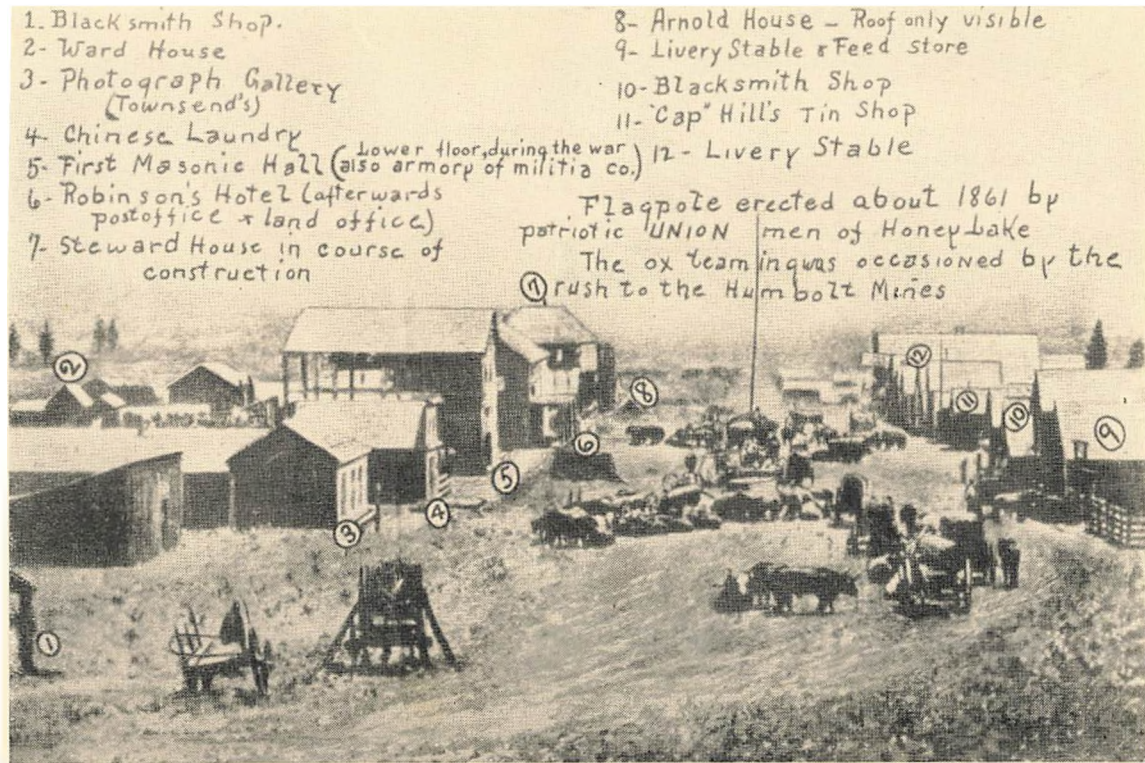 1. Blacksmith Shop.
2- Ward House
3- Photograph Gallery
(Townsend's)
4- Chinese Laundry
5- First Masonic Hall (Lower floor, during the war
also armory of militia co.)
6- Robinson's Hotel (afterwards
postoffice & land office)
7- Steward House in course of
construction
8- Arnold House - Roof only visible
9- Livery Stable & Feed store
10- Blacksmith Shop
11- "Cap" Hill's Tin Shop
12- Livery Stable
Flagpole erected about 1861 by
patriotic UNION men of Honey Lake
The ox teaming was occasioned by the
rush to the Humbolt Mines
7
2
12
8
11
10
9
6
5
4
3
1